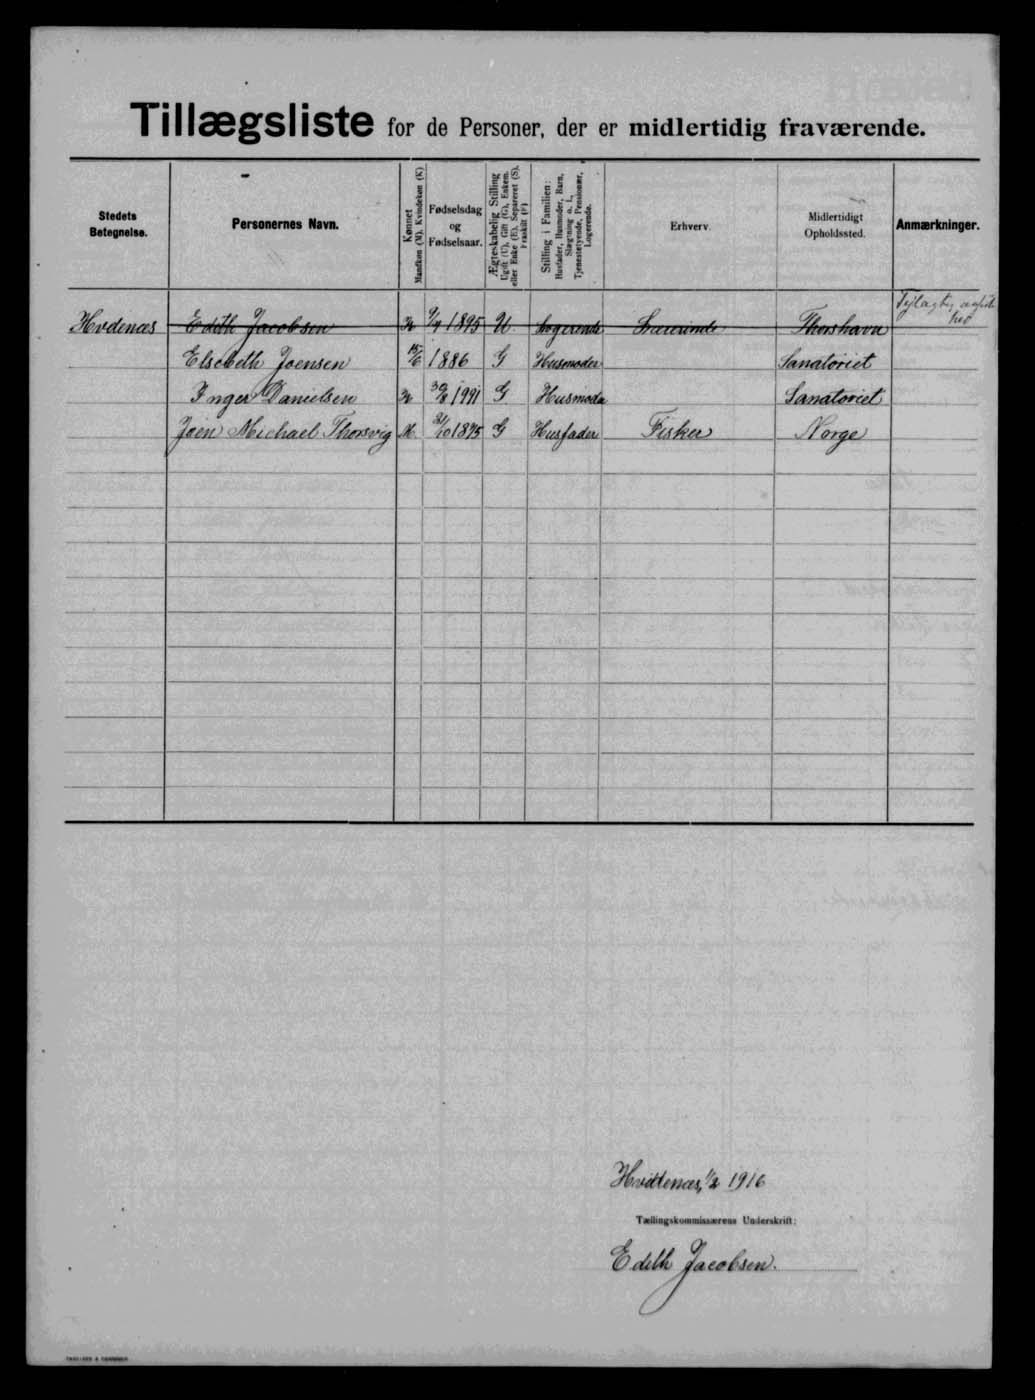 Tillægsliste for de Personer, der er midlertidig fraværende.
Stedets Betegnelse.
Personernes Navn.
Kønnet Mandkøn (M), Kvindekøn (K)
Fødselsdag og Fødselsaar.
Ægteskabelig Stilling Ugift (U), Gift (G), Enkem. eller Enke (E), Separeret (S), Fraskilt (F)
Stilling i Familien: Husfader, Husmoder, Barn, Slægtning o. l., Tjenestetyende, Pensionær, Logerende.
Erhverv.
Midlertidigt Opholdssted.
Anmærkninger.
Hvidenæs Edith Jacobsen K 9/4 1895 U Logerende Lærerinde Thorshavn
Elsebeth Joensen 15/6 1886 G Husmoder Sanatoriet
Inger Danielsen K 30/8 1991 G Husmoder Sanatoriet
Joen Michael Thorsvig M. 31/10 1875 G Husfader Fisker Norge
Hvidtenæs, 1/2 1916
Tællingskommissærens Underskrift:
Edith Jacobsen.